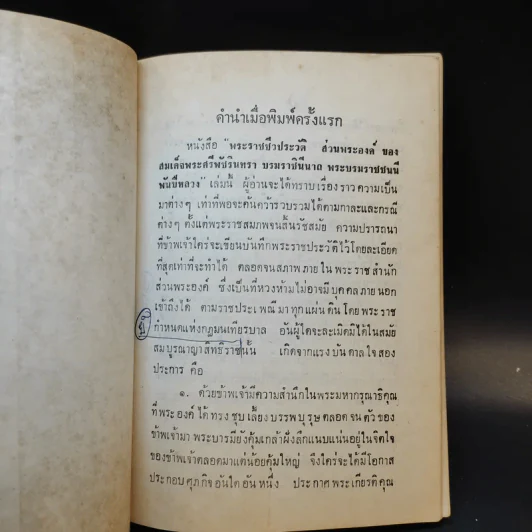 คำนำเมื่อพิมพ์ครั้งแรก
หนังสือ "พระราชชีวประวัติ ส่วนพระองค์ ของ
สมเด็จพระศรีพัชรินทรา บรมราชินีนาถ พระบรมราชชนนี
พันปีหลวง" เล่มนี้ ผู้อ่านจะได้ทราบเรื่องราว ความเป็น
มาต่างๆ เท่าที่พอจะค้นคว้ารวบรวมได้ตามกาละและกรณี
ต่างๆ ตั้งแต่พระราชสมภพจนสิ้นรัชสมัย ความปรารถนา
ที่ข้าพเจ้าใคร่จะเขียนบันทึกพระราชประวัติไว้โดยละเอียด
ที่สุดเท่าที่จะทำได้ ตลอดจนสภาพภายในพระราชสำนัก
ส่วนพระองค์ ซึ่งเป็นที่หวงห้ามไม่อาจมีบุคคลภายนอก
เข้าถึงได้ ตามราชประเพณีมาทุกแผ่นดินโดยพระราช
กำหนดแห่งกฎมนเทียรบาล อันผู้ใดจะละเมิดมิได้ในสมัย
สมบูรณาญาสิทธิราชนั้น เกิดจากแรงบันดาลใจสอง
ประการ คือ
๑. ด้วยข้าพเจ้ามีความสำนึกในพระมหากรุณาธิคุณ
ที่พระองค์ได้ทรงชุบเลี้ยงบรรพบุรุษตลอดจนตัวของ
ข้าพเจ้ามา พระบารมียังคุ้มเกล้าฝังลึกแนบแน่นอยู่ในจิตใจ
ของข้าพเจ้าตลอดมาแต่น้อยคุ้มใหญ่ จึงใคร่จะได้มีโอกาส
ประกอบศุภกิจอันใดอันหนึ่ง ประกาศพระเกียรติคุณ